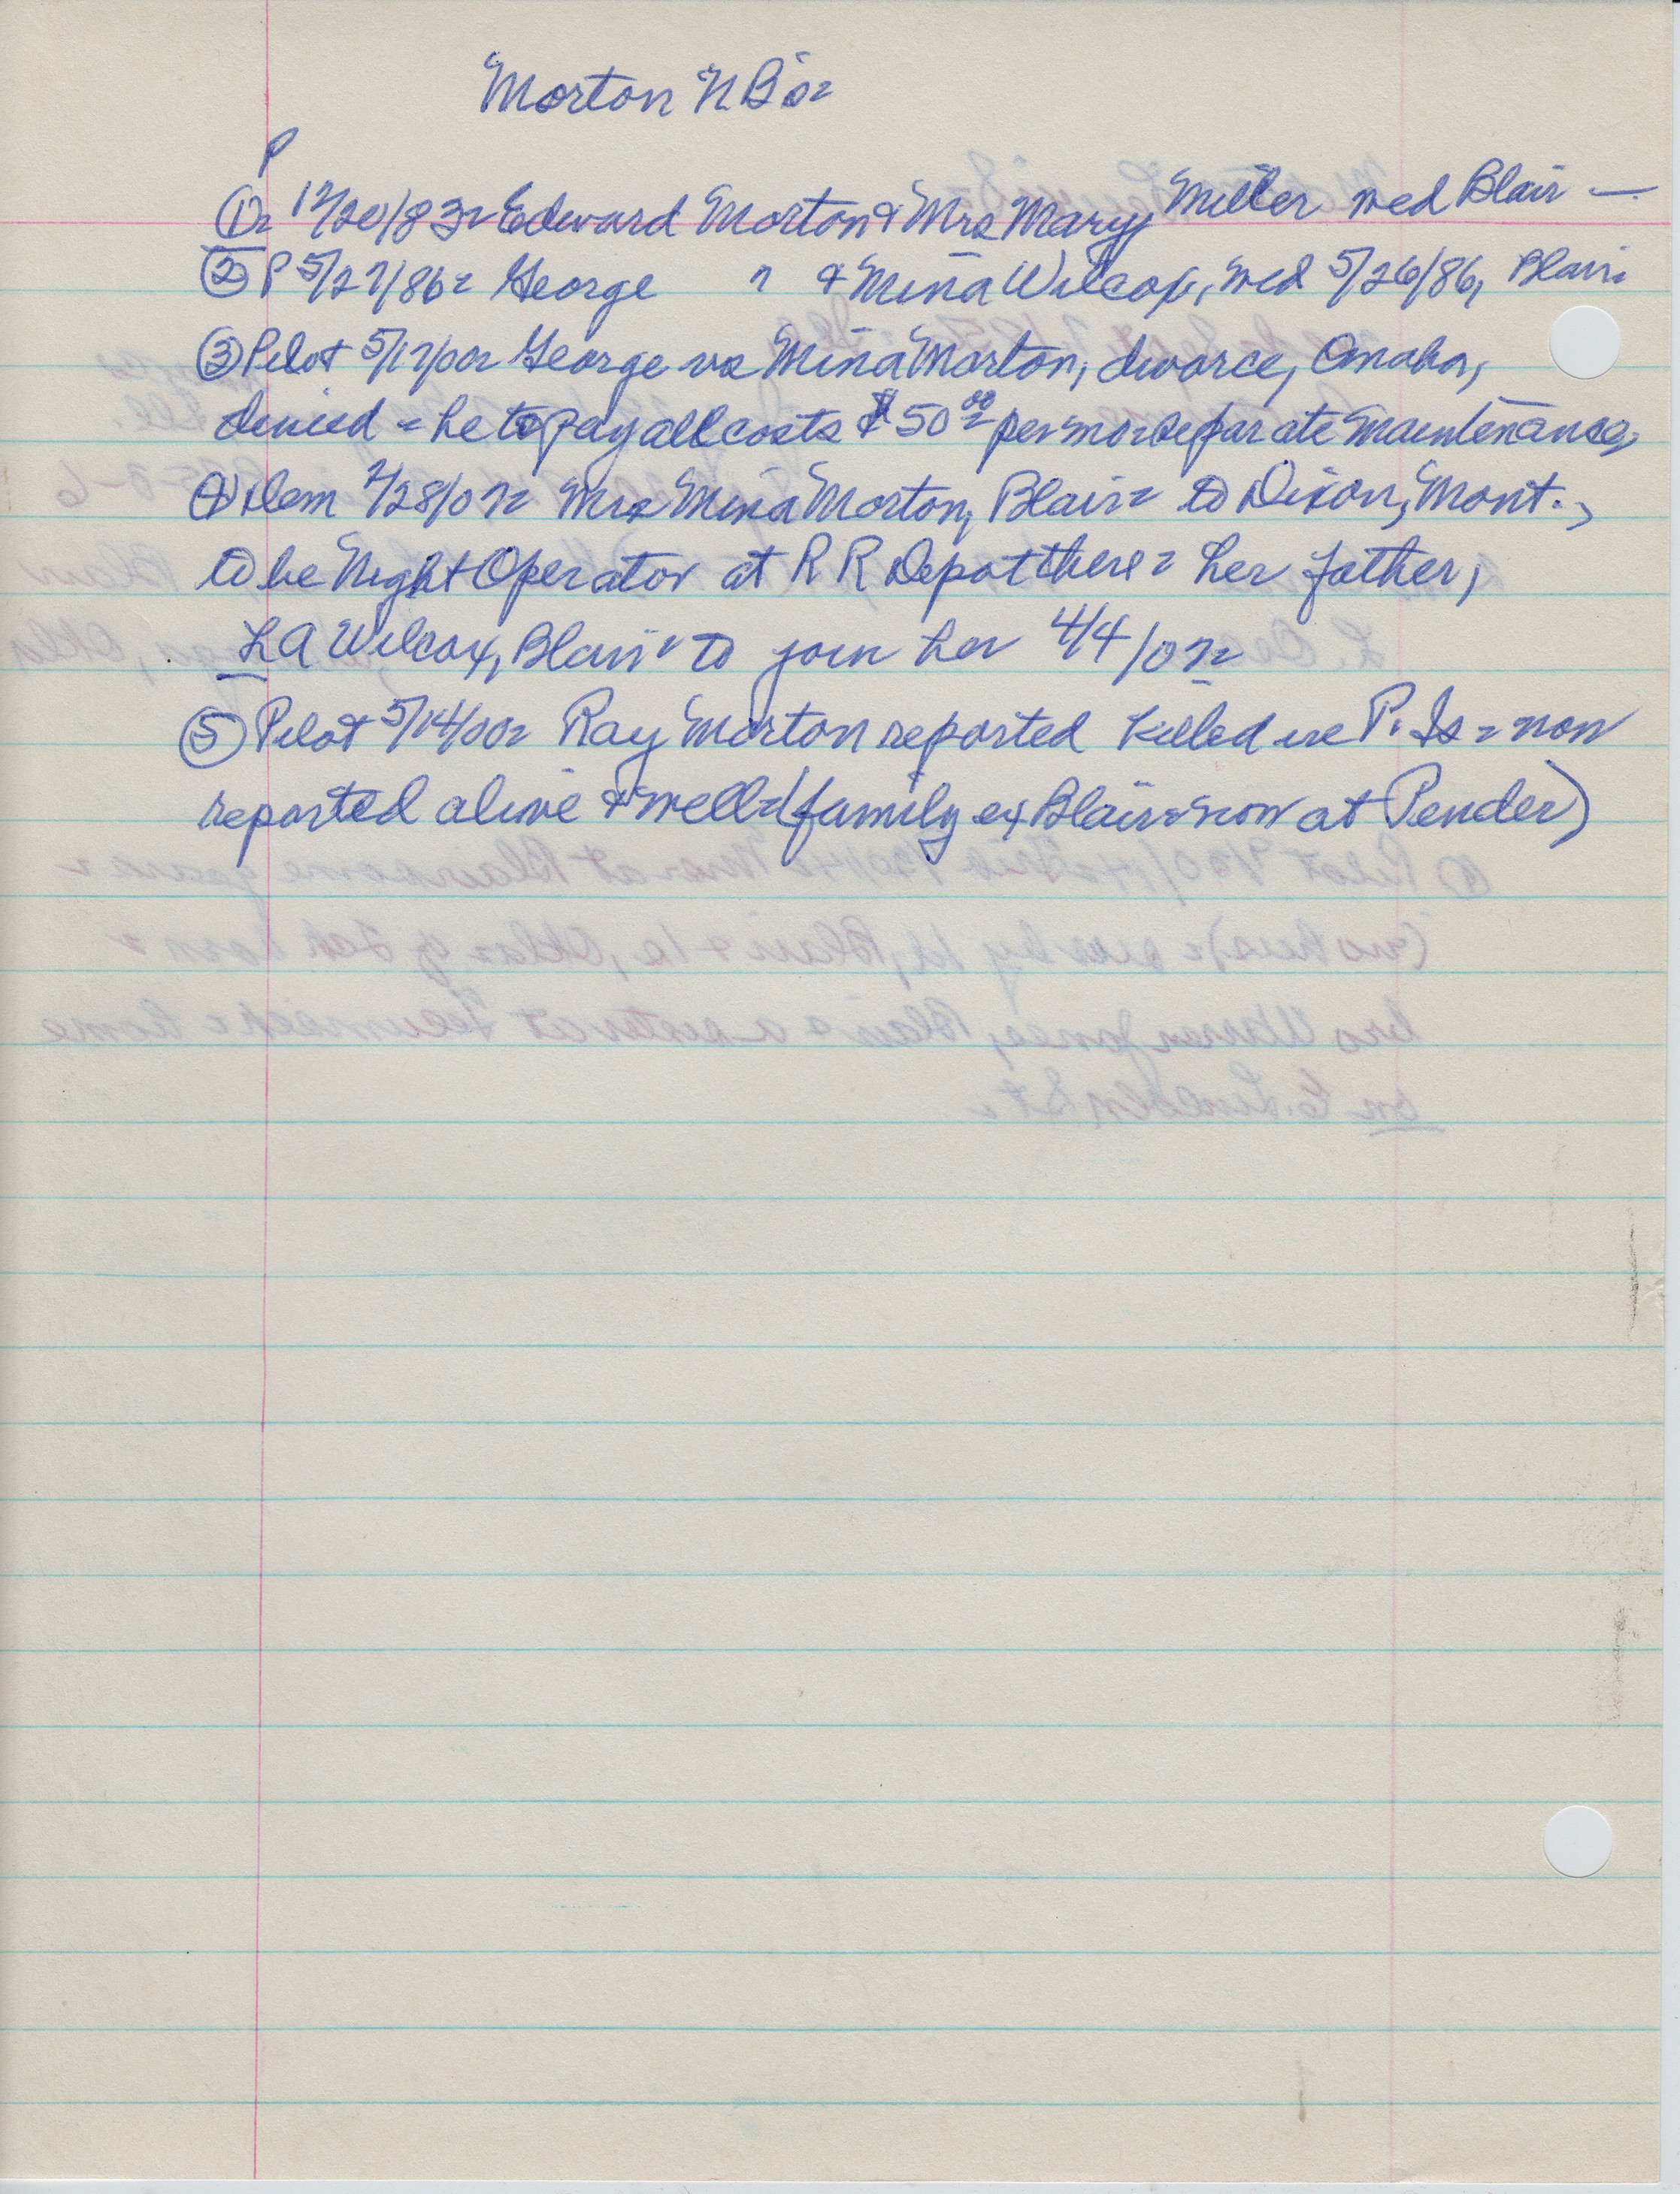 Morton NB's=
P
①= 12/20/83= Edward Morton & Mrs Mary Miller wed Blair —
② P 5/27/86= George " & Mina Wilcox, wed 5/26/86, Blair=
③ Pilot 5/17/00= George vs Mina Morton, divorce, Omaha,
denied = he to pay all costs & $50.00 per mo= separate maintenance,
④ Dem 2/28/07= Mrs Mina Morton, Blair= to Dixon, Mont.,
to be Night Operator at R R Depot there= her father,
L A Wilcox, Blair= to join her 4/4/07=
⑤ Pilot 5/14/00= Ray Morton reported killed in P. Is= now
reported alive & well= (family ex Blair= now at Pender)